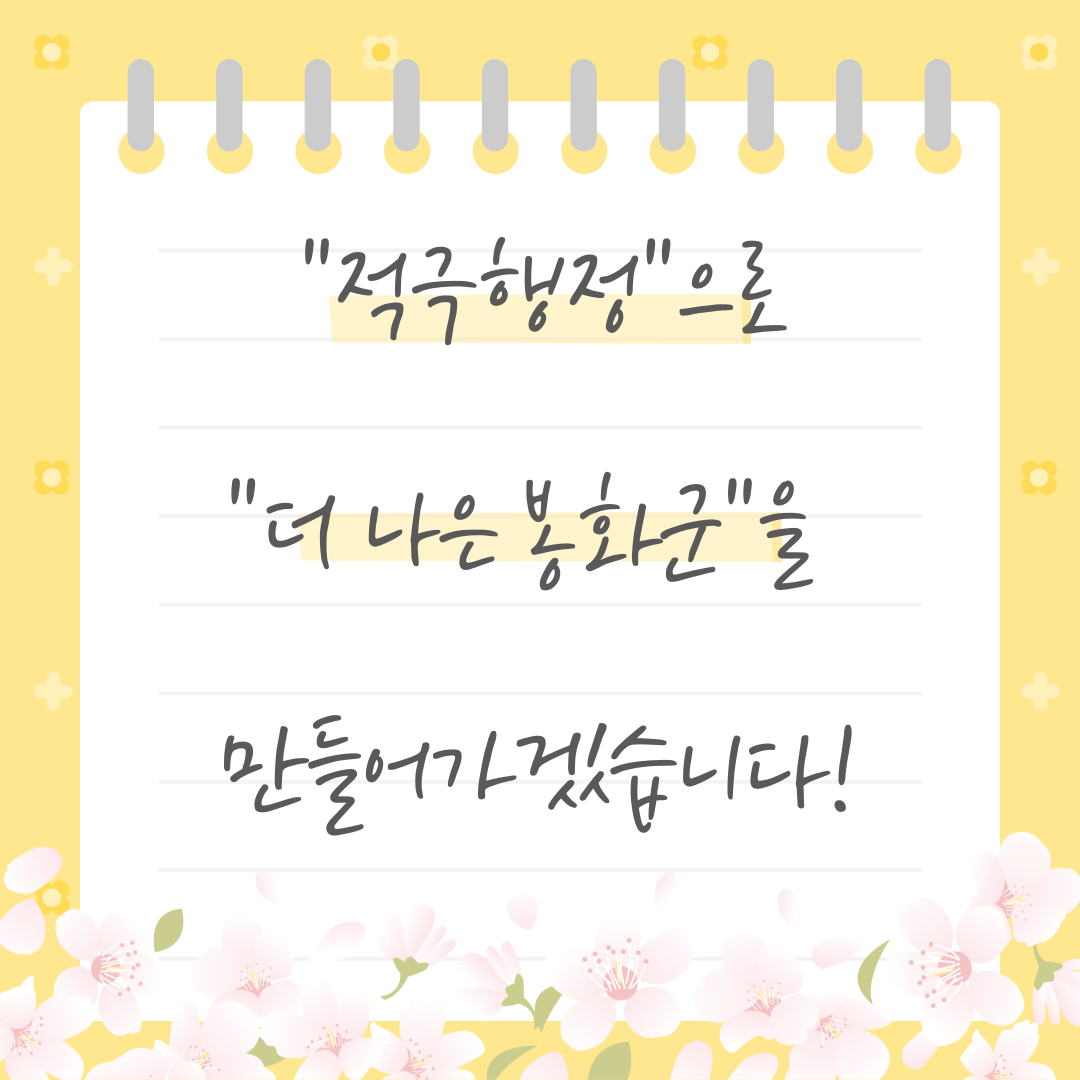 "적극행정"으로
"더 나은 봉화군"을
만들어가겠습니다!